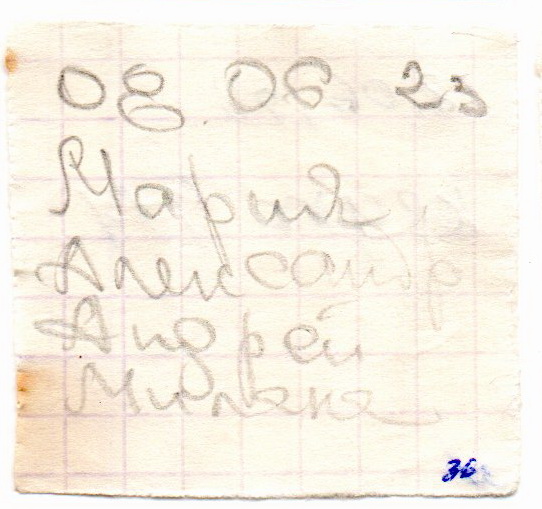 08 06 23
Мария
Александр
Андрей
Милана
36